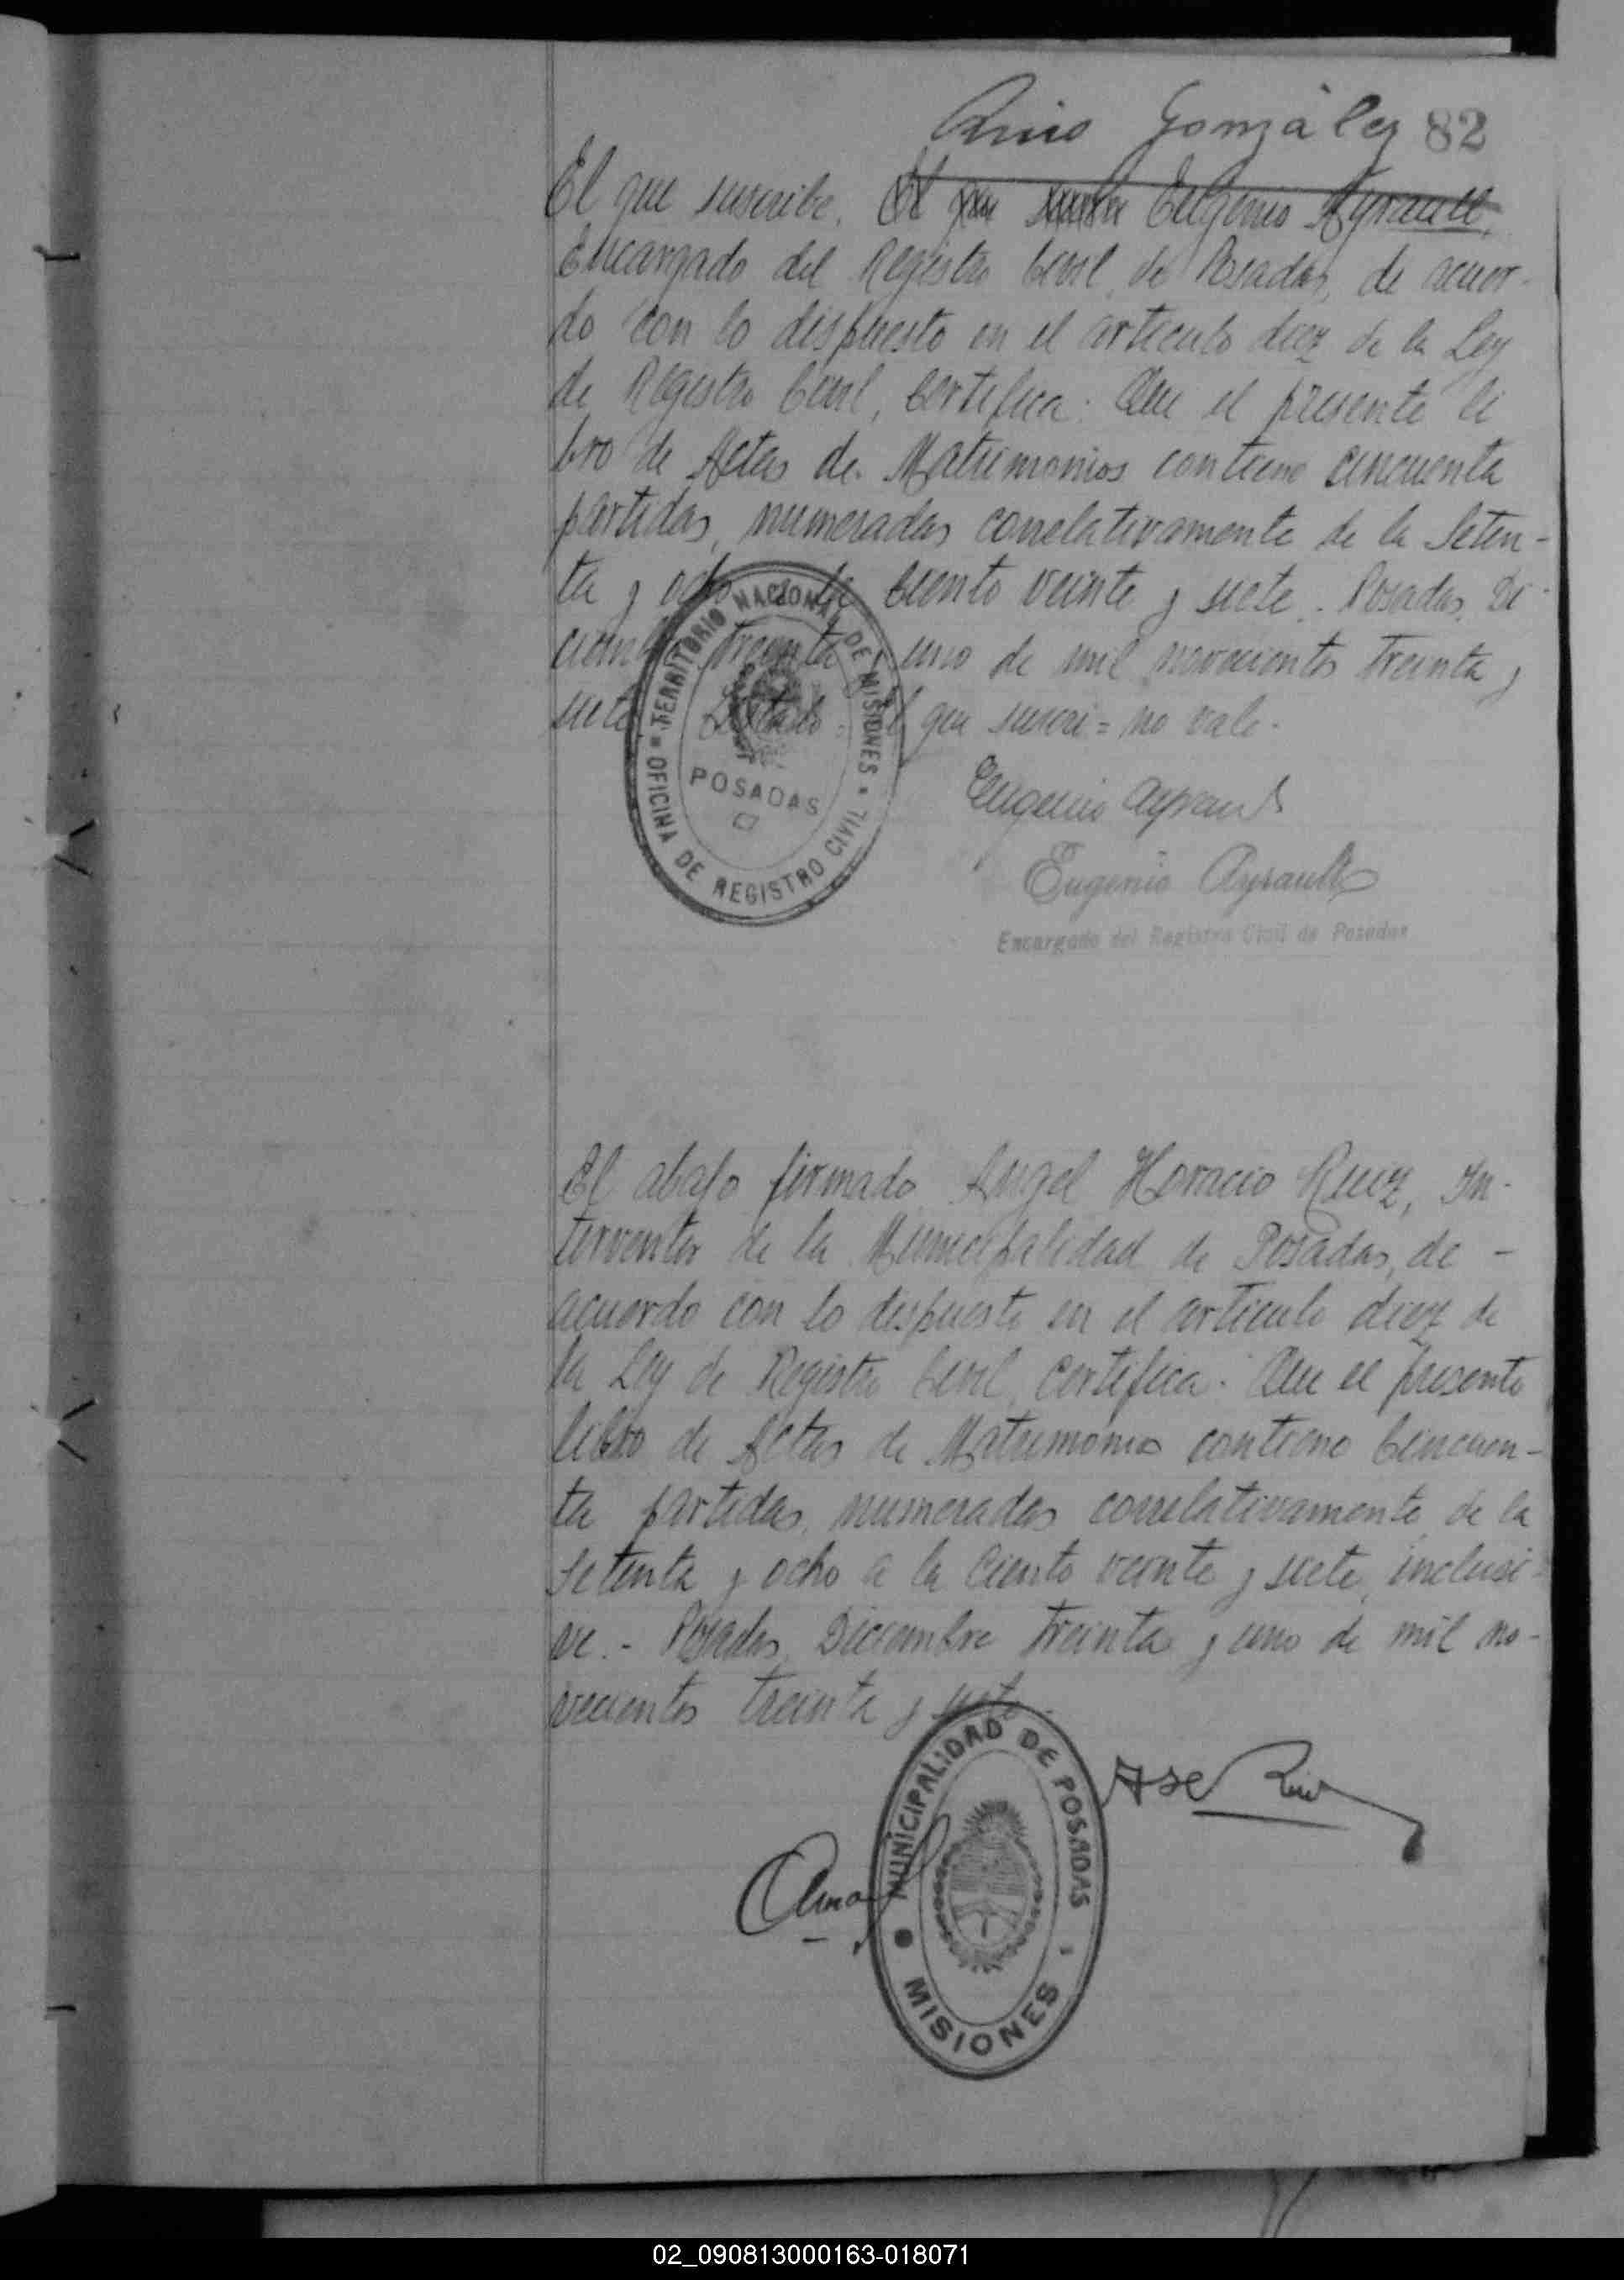 González 82
El que suscribe, El que suscri Eugenio Ayrault,
Encargado del Registro Civil de Posadas, de acuer-
do con lo dispuesto en el artículo diez de la Ley
de Registro Civil, Certifica: Que el presente li
bro de Actas de Matrimonios contiene cincuenta
partidas, numeradas correlativamente de la Seten-
ta y ocho a la Ciento veinte y siete. Posadas, Di-
ciembre treinta y uno de mil novecientos treinta y
siete. Testado: El que suscri = no vale.
TERRITORIO NACIONAL DE MISIONES
POSADAS
OFICINA DE REGISTRO CIVIL
Eugenio Ayrault
Eugenio Ayrault
Encargado del Registro Civil de Posadas
El abajo firmado Angel Horacio Ruiz, In-
terventor de la Municipalidad de Posadas, de -
acuerdo con lo dispuesto en el artículo diez de
la Ley de Registro Civil, Certifica: Que el presente
libro de Actas de Matrimonios contiene Cincuen-
ta partidas, numeradas correlativamente, de la
setenta y ocho a la Ciento veinte y siete, inclusi-
ve.- Posadas, Diciembre treinta y uno de mil no-
vecientos treinta y siete.
MUNICIPALIDAD DE POSADAS
MISIONES
02_090813000163-018071